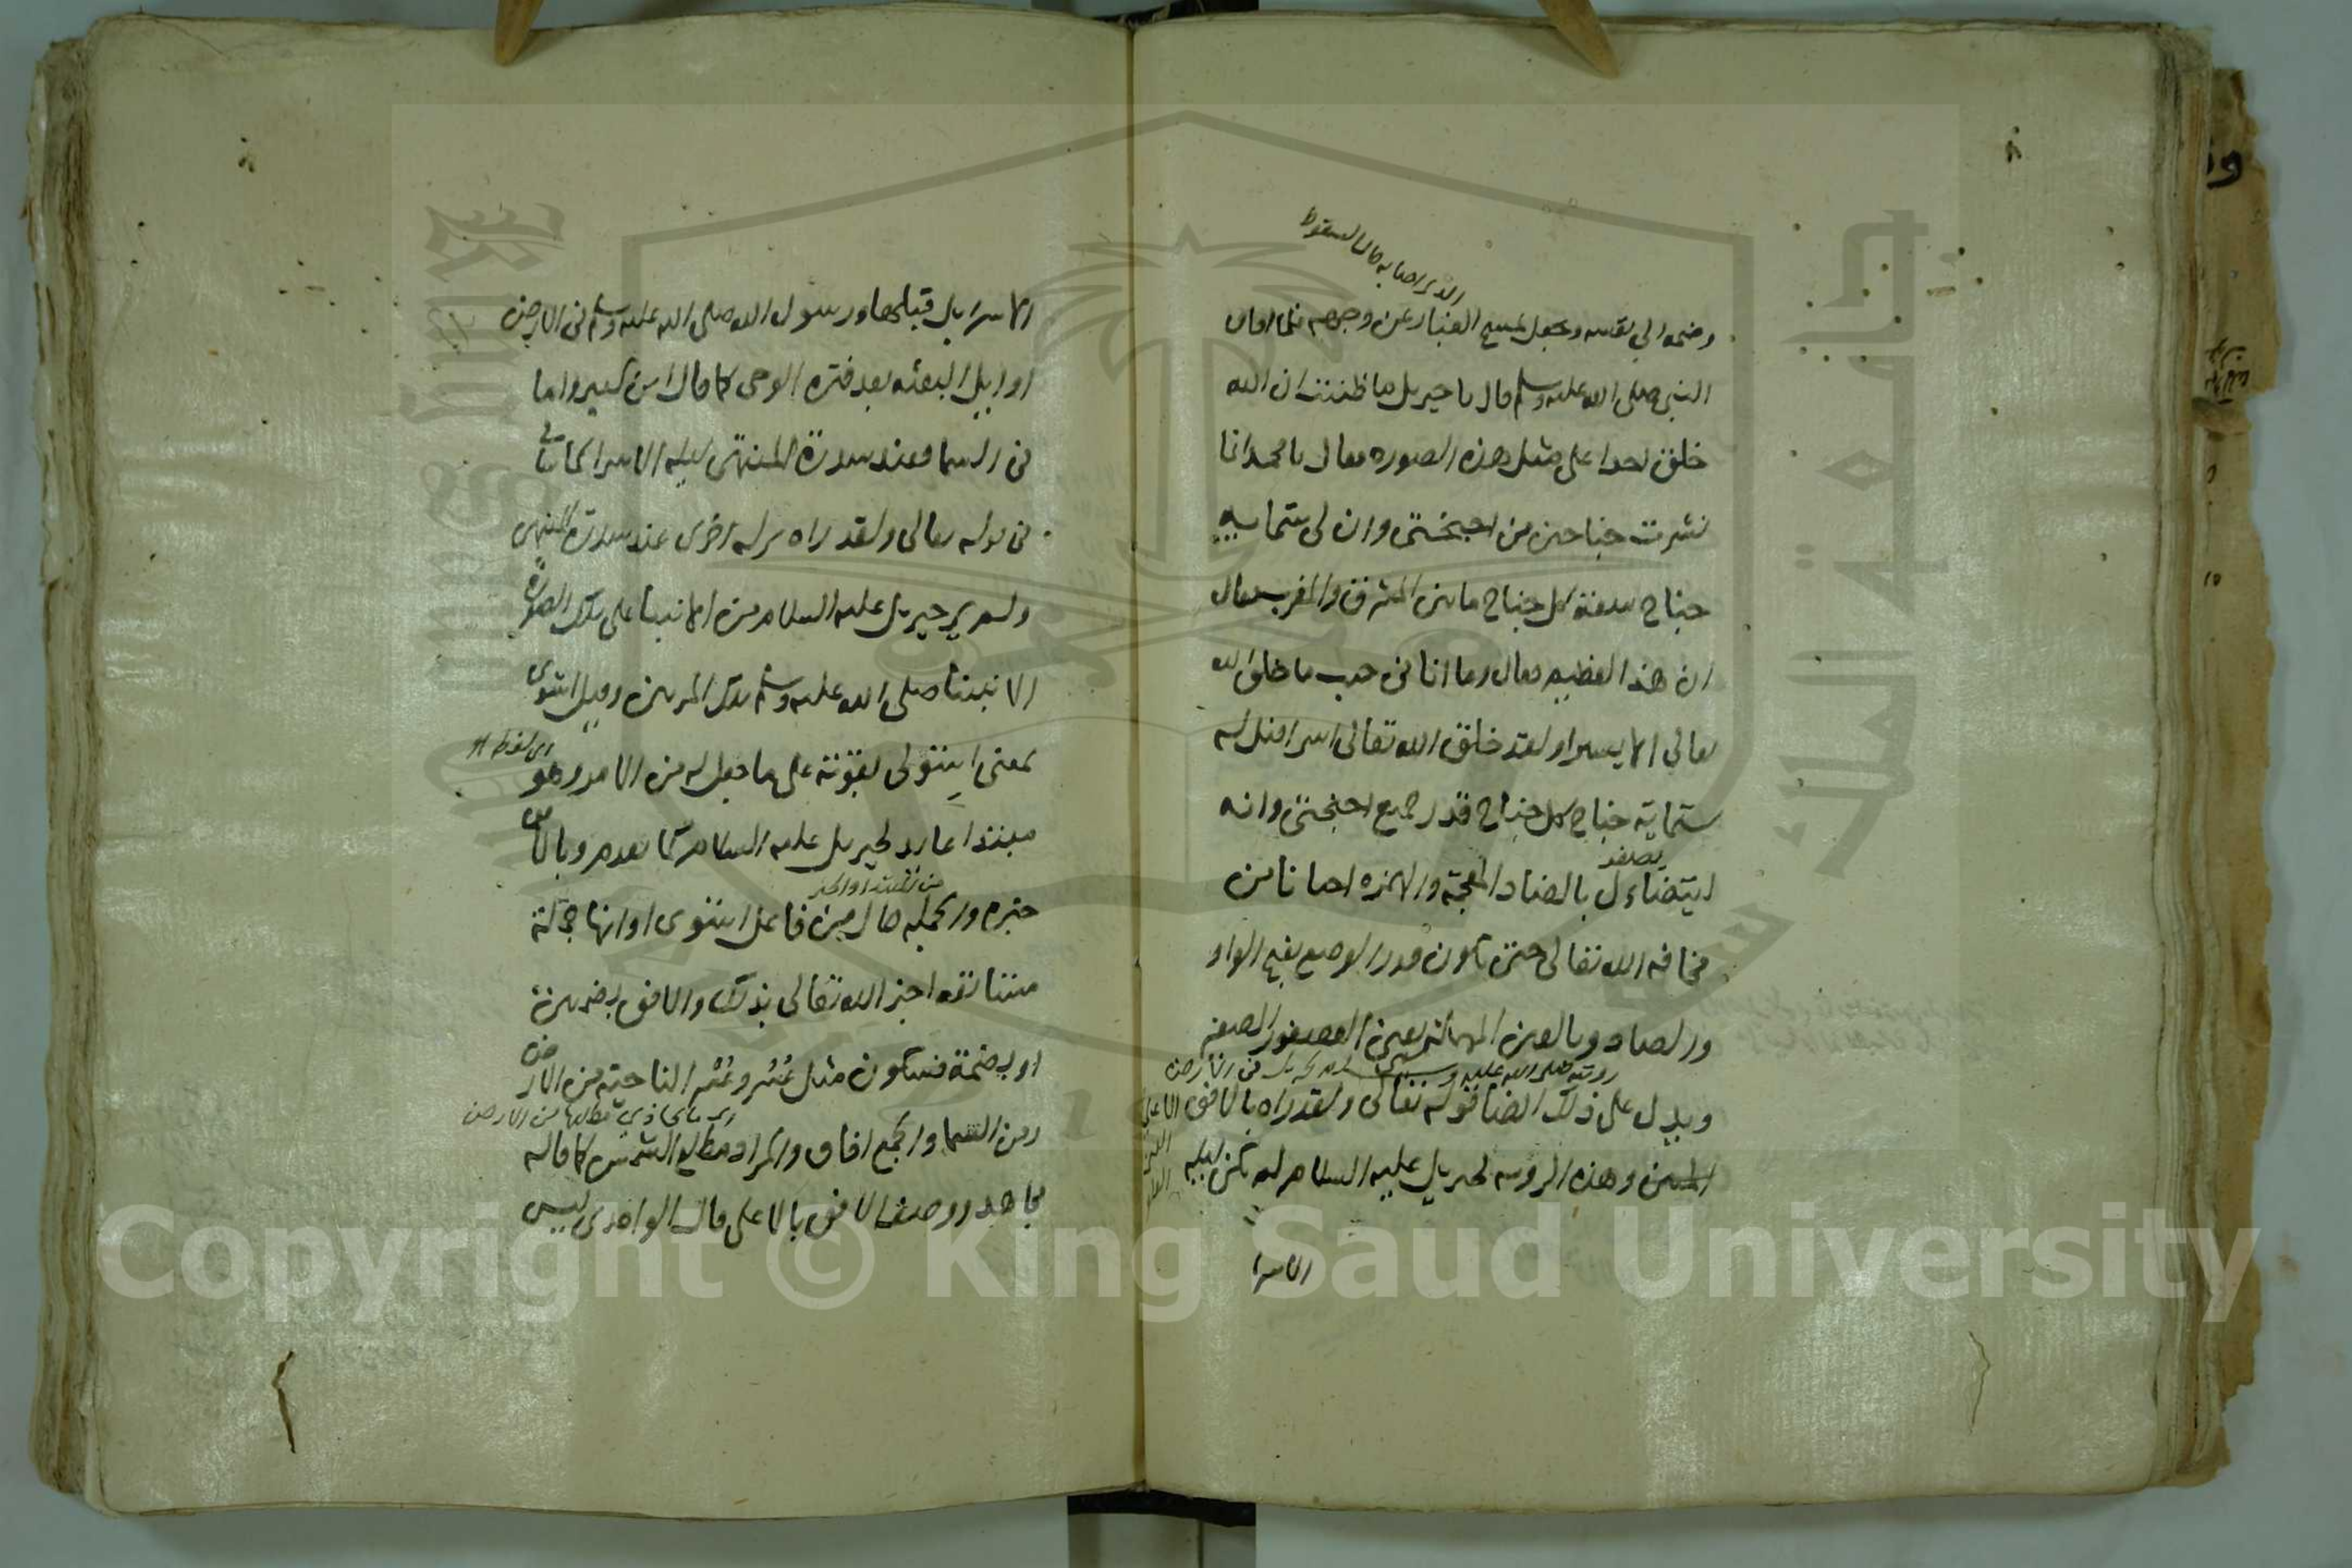 الذي اصابه حال السقوط
وضمه الي نفسه وجعل يمسح الغبار عن وجهه فلما افاق
النبي صلى الله عليه وسلم قال يا جبريل ما ظننت ان الله
خلق احدا على مثل هذه الصوره فقال يا محمد انما
نشرت جناحين من اجنحتى وان لى ستمايه
جناح سعة كل جناح ما بين المشرق والمغرب فقال
ان هذا لعظيم فقال وما انا في جنب ما خلق الله
تعالي الا يسيرا ولقد خلق الله تعالى اسرافيل له
ستماية جناح كل جناح قدر جميع اجنحتى وانه
يصغر
ليتضاءل بالضاد المعجمة والهمزه احيانا من
مخافه الله تعالى حتى يكون قدر الوصع بفتح الواو
والصاد وبالعين المهملتين يعنى العصفور الصغير
رويته صلى الله عليه وسلم لجبريل في الارض
ويدل على ذلك ايضا قوله تعالى ولقد راه بالافق الاعلى
المبين وهذه الرويه لجبريل عليه السلام لم تكن ليله
الاسرا
الاسرا بل قبلها ورسول الله صلى الله عليه وسلم في الارض
اوايل البعثه بعد فتره الوحى كما قال ابن كثير واما
في السما فعند سدرة المنتهى ليله الاسرا كما ياتي
في قوله تعالى ولقد راه نزله اخرى عند سدرة المنتهى
ولم ير جبريل عليه السلام من الانبيا على تلك الصورة
الا نبينا صلى الله عليه وسلم تلك المرتين وقيل استوى
اي لفظ هو
بمعنى استولى بقوته على ما جعل له من الامر وهو
مبتدا عايد لجبريل عليه السلام كما تقدم وبالافق
من المبتدا والخبر
خبره والجمله حال من فاعل استوى او انها جملة
مستانفه اخبر الله تعالى بذلك والافق بضمين
او بضمة فسكون مثل عُسُر وعُسْر الناحيه من الارض
اي ما يحاذي مطلعها من الارض
ومن السما والجمع افاق والمراد مطلع الشمس كما قاله
مجاهد ووصف الافق بالاعلى قال الواحدى ليس
Copyright © King Saud University